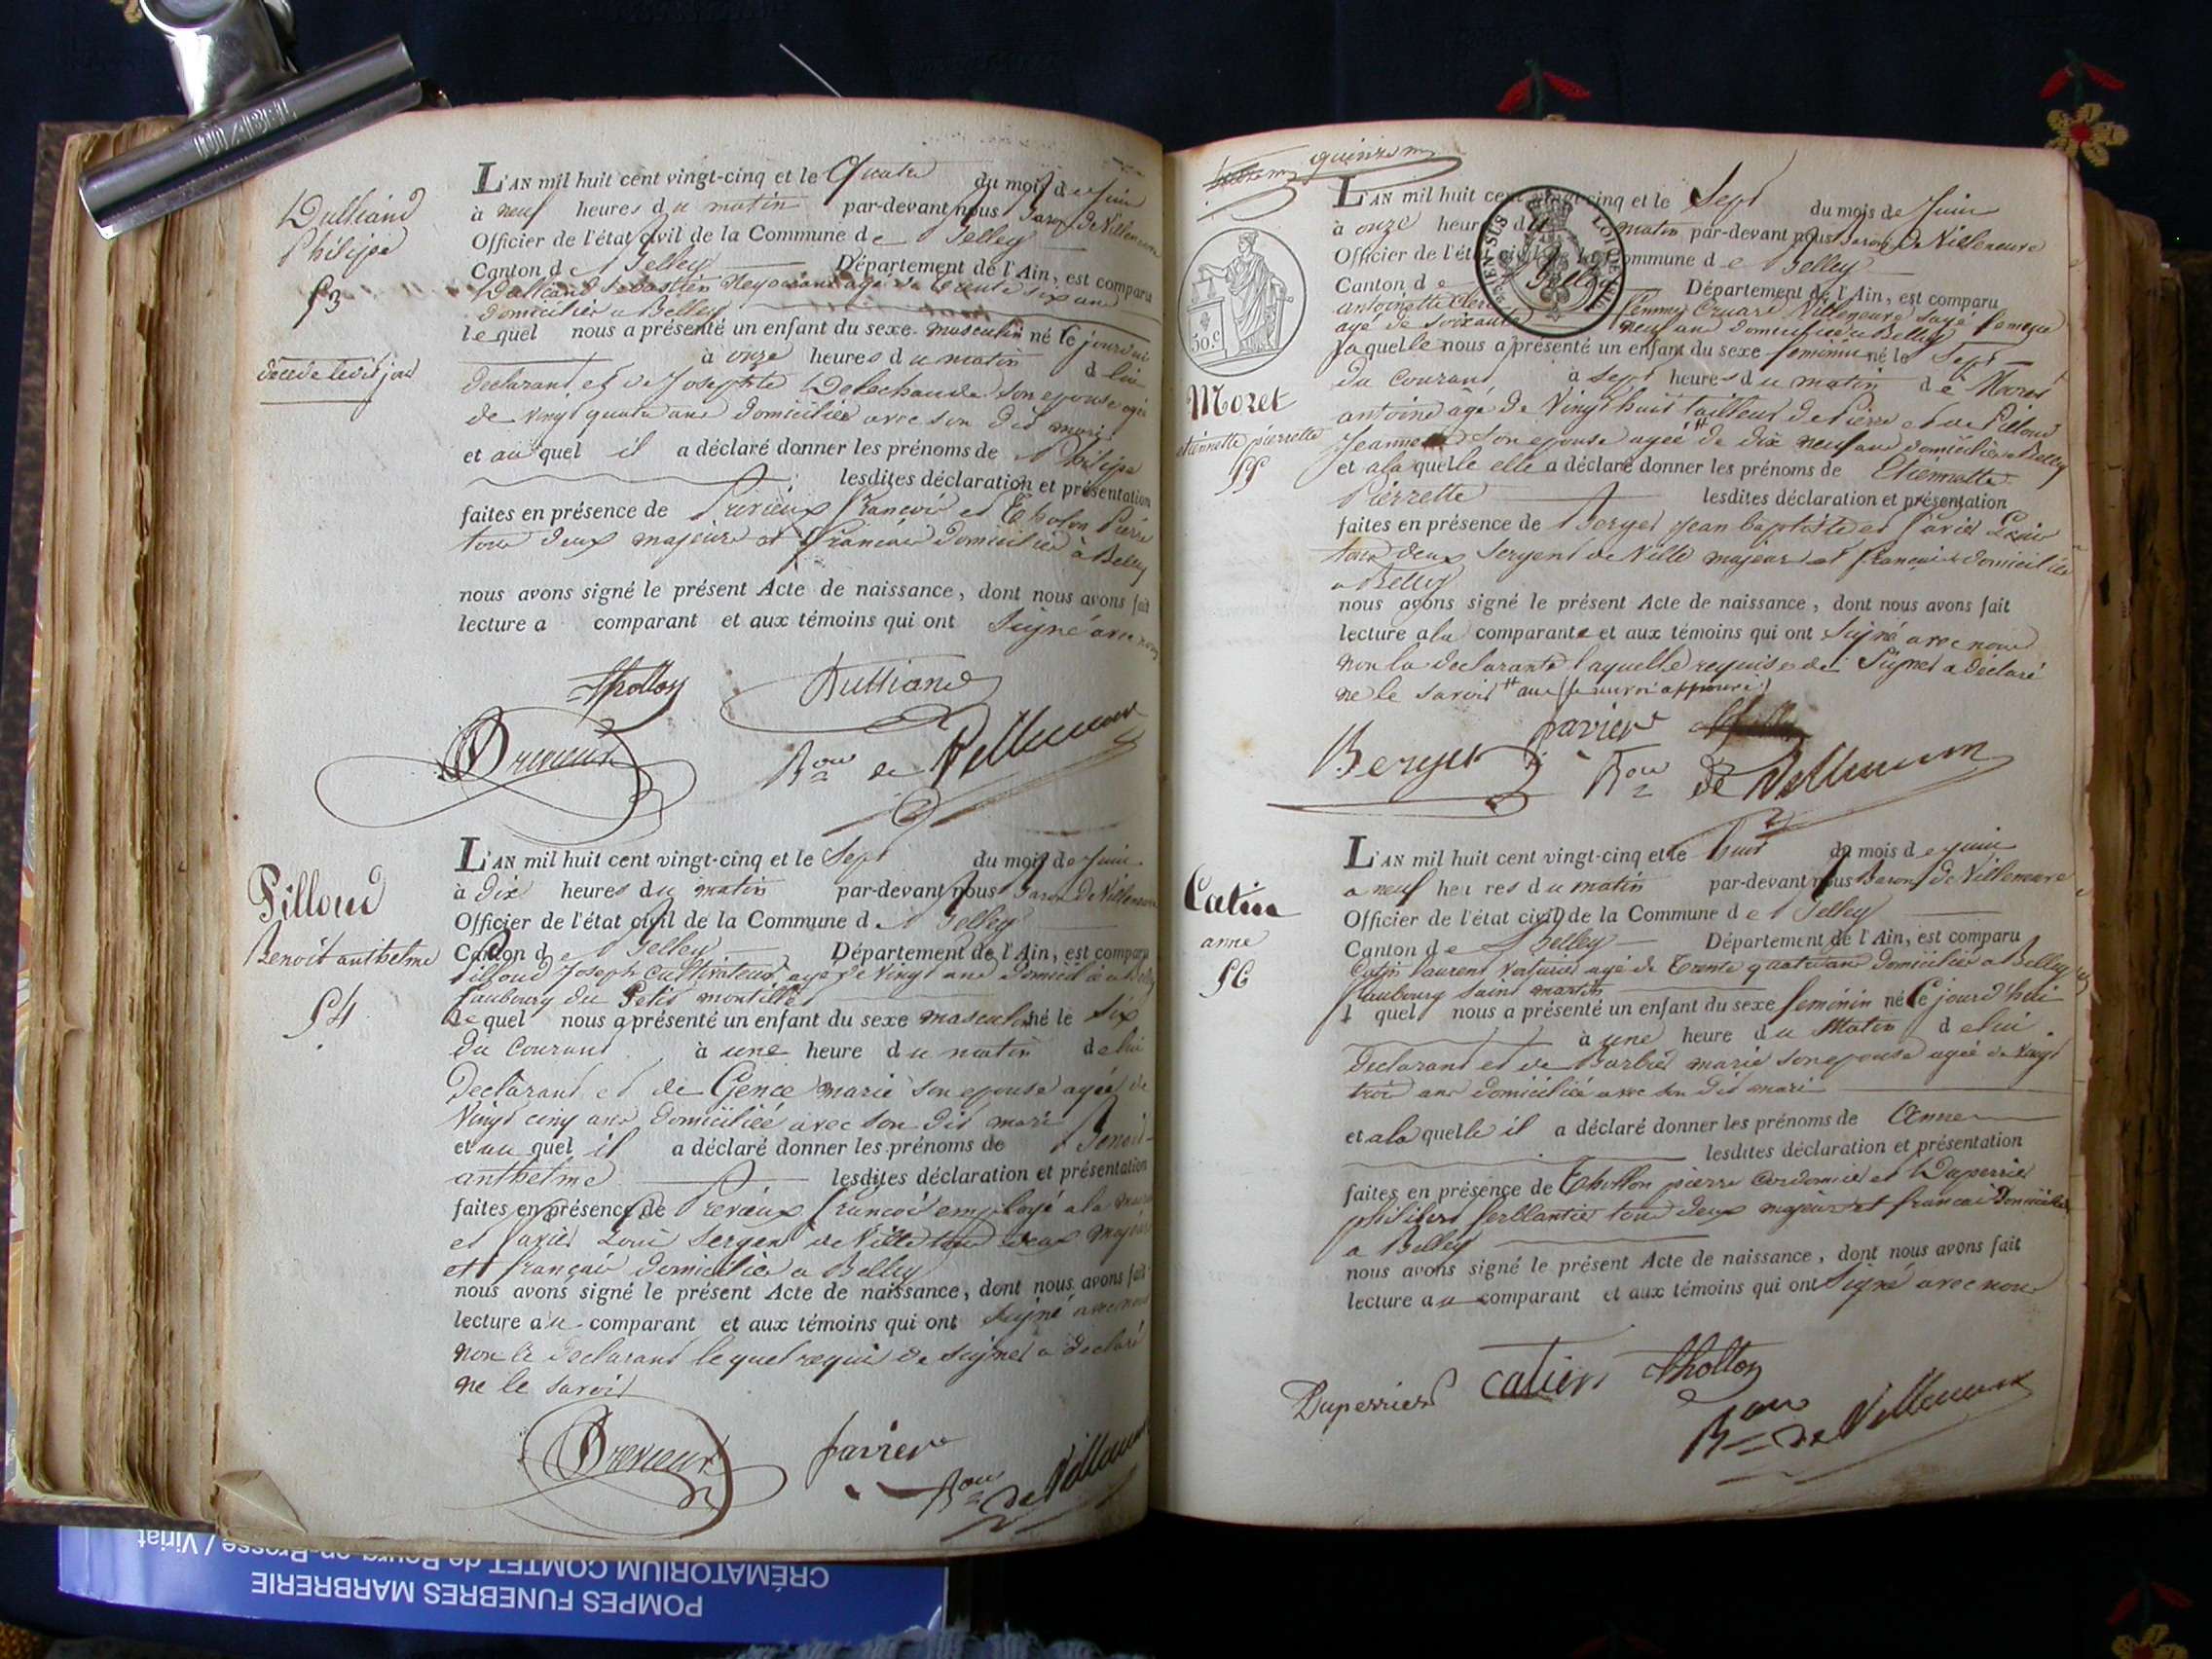 Dulliand
Philipe
53
décédé ledit jour
L'AN mil huit cent vingt-cinq et le Quatre du mois de Juin
à neuf heures du matin par-devant nous Baron De Villeneuve
Officier de l'état civil de la Commune de Belley
Canton de Belley Département de l'Ain, est comparu
Dulliand Sebastien Negociant agé de trente six ans
domicilier a Belley
lequel nous a présenté un enfant du sexe masculin né le jourdui
à onze heures du matin de lui
declarant et de Josephte Delachaude son epouse agée
de vingt quatre ans domiciliée avec son dit mari
et au quel il a déclaré donner les prénoms de Philipe
lesdites déclaration et présentation
faites en présence de Previeux francois et Tholon Pierre
tous deux majeurs et francais domicilié à Belley
nous avons signé le présent Acte de naissance, dont nous avons fait
lecture a comparant et aux témoins qui ont Signé avec nous
Thollon Dulliand
Previeux Bon de Villeneuve
Pilloud
Benoit anthelme
54
L'AN mil huit cent vingt-cinq et le Sept du mois de Juin
à dix heures du matin par-devant nous Baron De Villeneuve
Officier de l'état civil de la Commune de Belley
Canton de Belley Département de l'Ain, est comparu
Pilloud Joseph Cultivateur agé de vingt ans domicilié a Belley
faubourg du Petit montillet
Lequel nous a présenté un enfant du sexe masculin né le Six
du Courant à une heure du matin de lui
Declarant et de Gence marie son epouse agée de
Vingt cinq ans domiciliée avec son dit mari
et au quel il a déclaré donner les prénoms de Benoit
anthelme lesdites déclaration et présentation
faites en présence de Previeux francois employé a la mairie
et Favier Loui Sergent de Ville tous deux majeurs
et français domicilié a Belley
nous avons signé le présent Acte de naissance, dont nous avons fait
lecture au comparant et aux témoins qui ont Signé avec nous
non le declarant lequel requis de signer a déclaré
ne le savoir
Previeux favier
Bon de Villeneuve
quinze
L'AN mil huit cent vingt-cinq et le Sept du mois de Juin
à onze heures du matin par-devant nous Baron De Villeneuve
Officier de l'état civil de la Commune de Belley
Canton de Belley Département de l'Ain, est comparu
antoinette Clerc femme Cruard Villeneuve Sage femme
agé de Soixante neuf ans domiciliée a Belley
Laquelle nous a présenté un enfant du sexe feminin né le Sept
du Courant à sept heures du matin de Moret
antoine agé de Vingt huit tailleur de Pierre et de Pilloud
Jeanne son epouse agée de dix neuf ans domiciliée a Belley
et a la quelle elle a déclaré donner les prénoms de Etiennette
Pierrette lesdites déclaration et présentation
faites en présence de Berger Jean baptiste et favier Loui
tous deux Sergent de Ville majeurs et francais domicilié
a Belley
nous avons signé le présent Acte de naissance, dont nous avons fait
lecture a la comparante et aux témoins qui ont Signé avec nous
non la declarante laquelle requise de Signer a déclaré
ne le savoir ans (le renvoi approuvé)
30.C
Moret
etiennette pierrette
55
favier
Berger Bon de Villeneuve
Catin
anne
56
L'AN mil huit cent vingt-cinq et le huit du mois de juin
a neuf heures du matin par-devant nous Baron De Villeneuve
Officier de l'état civil de la Commune de Belley
Canton de Belley Département de l'Ain, est comparu
Catin laurent Voiturier agé de trente quatre ans domicilié a Belley
faubourg saint martin
l quel nous a présenté un enfant du sexe feminin né le jourd'hui
à une heure du Matin de lui
Declarant et de Barbier marie son epouse agée de vingt
trois ans domiciliée avec son dit mari
et a la quelle il a déclaré donner les prénoms de Anne
lesdites déclaration et présentation
faites en présence de Thollon pierre Cordonnier et Duperrier
philibert ferblantier tous deux majeurs et francais Domicilié
a Belley
nous avons signé le présent Acte de naissance, dont nous avons fait
lecture au comparant et aux témoins qui ont Signé avec nous
Duperrier Catien thollon
Bon de Villeneuve
POMPES FUNEBRES MARBRERIE
CRÉMATORIUM COMTET de Bourg-en-Bresse / Viriat